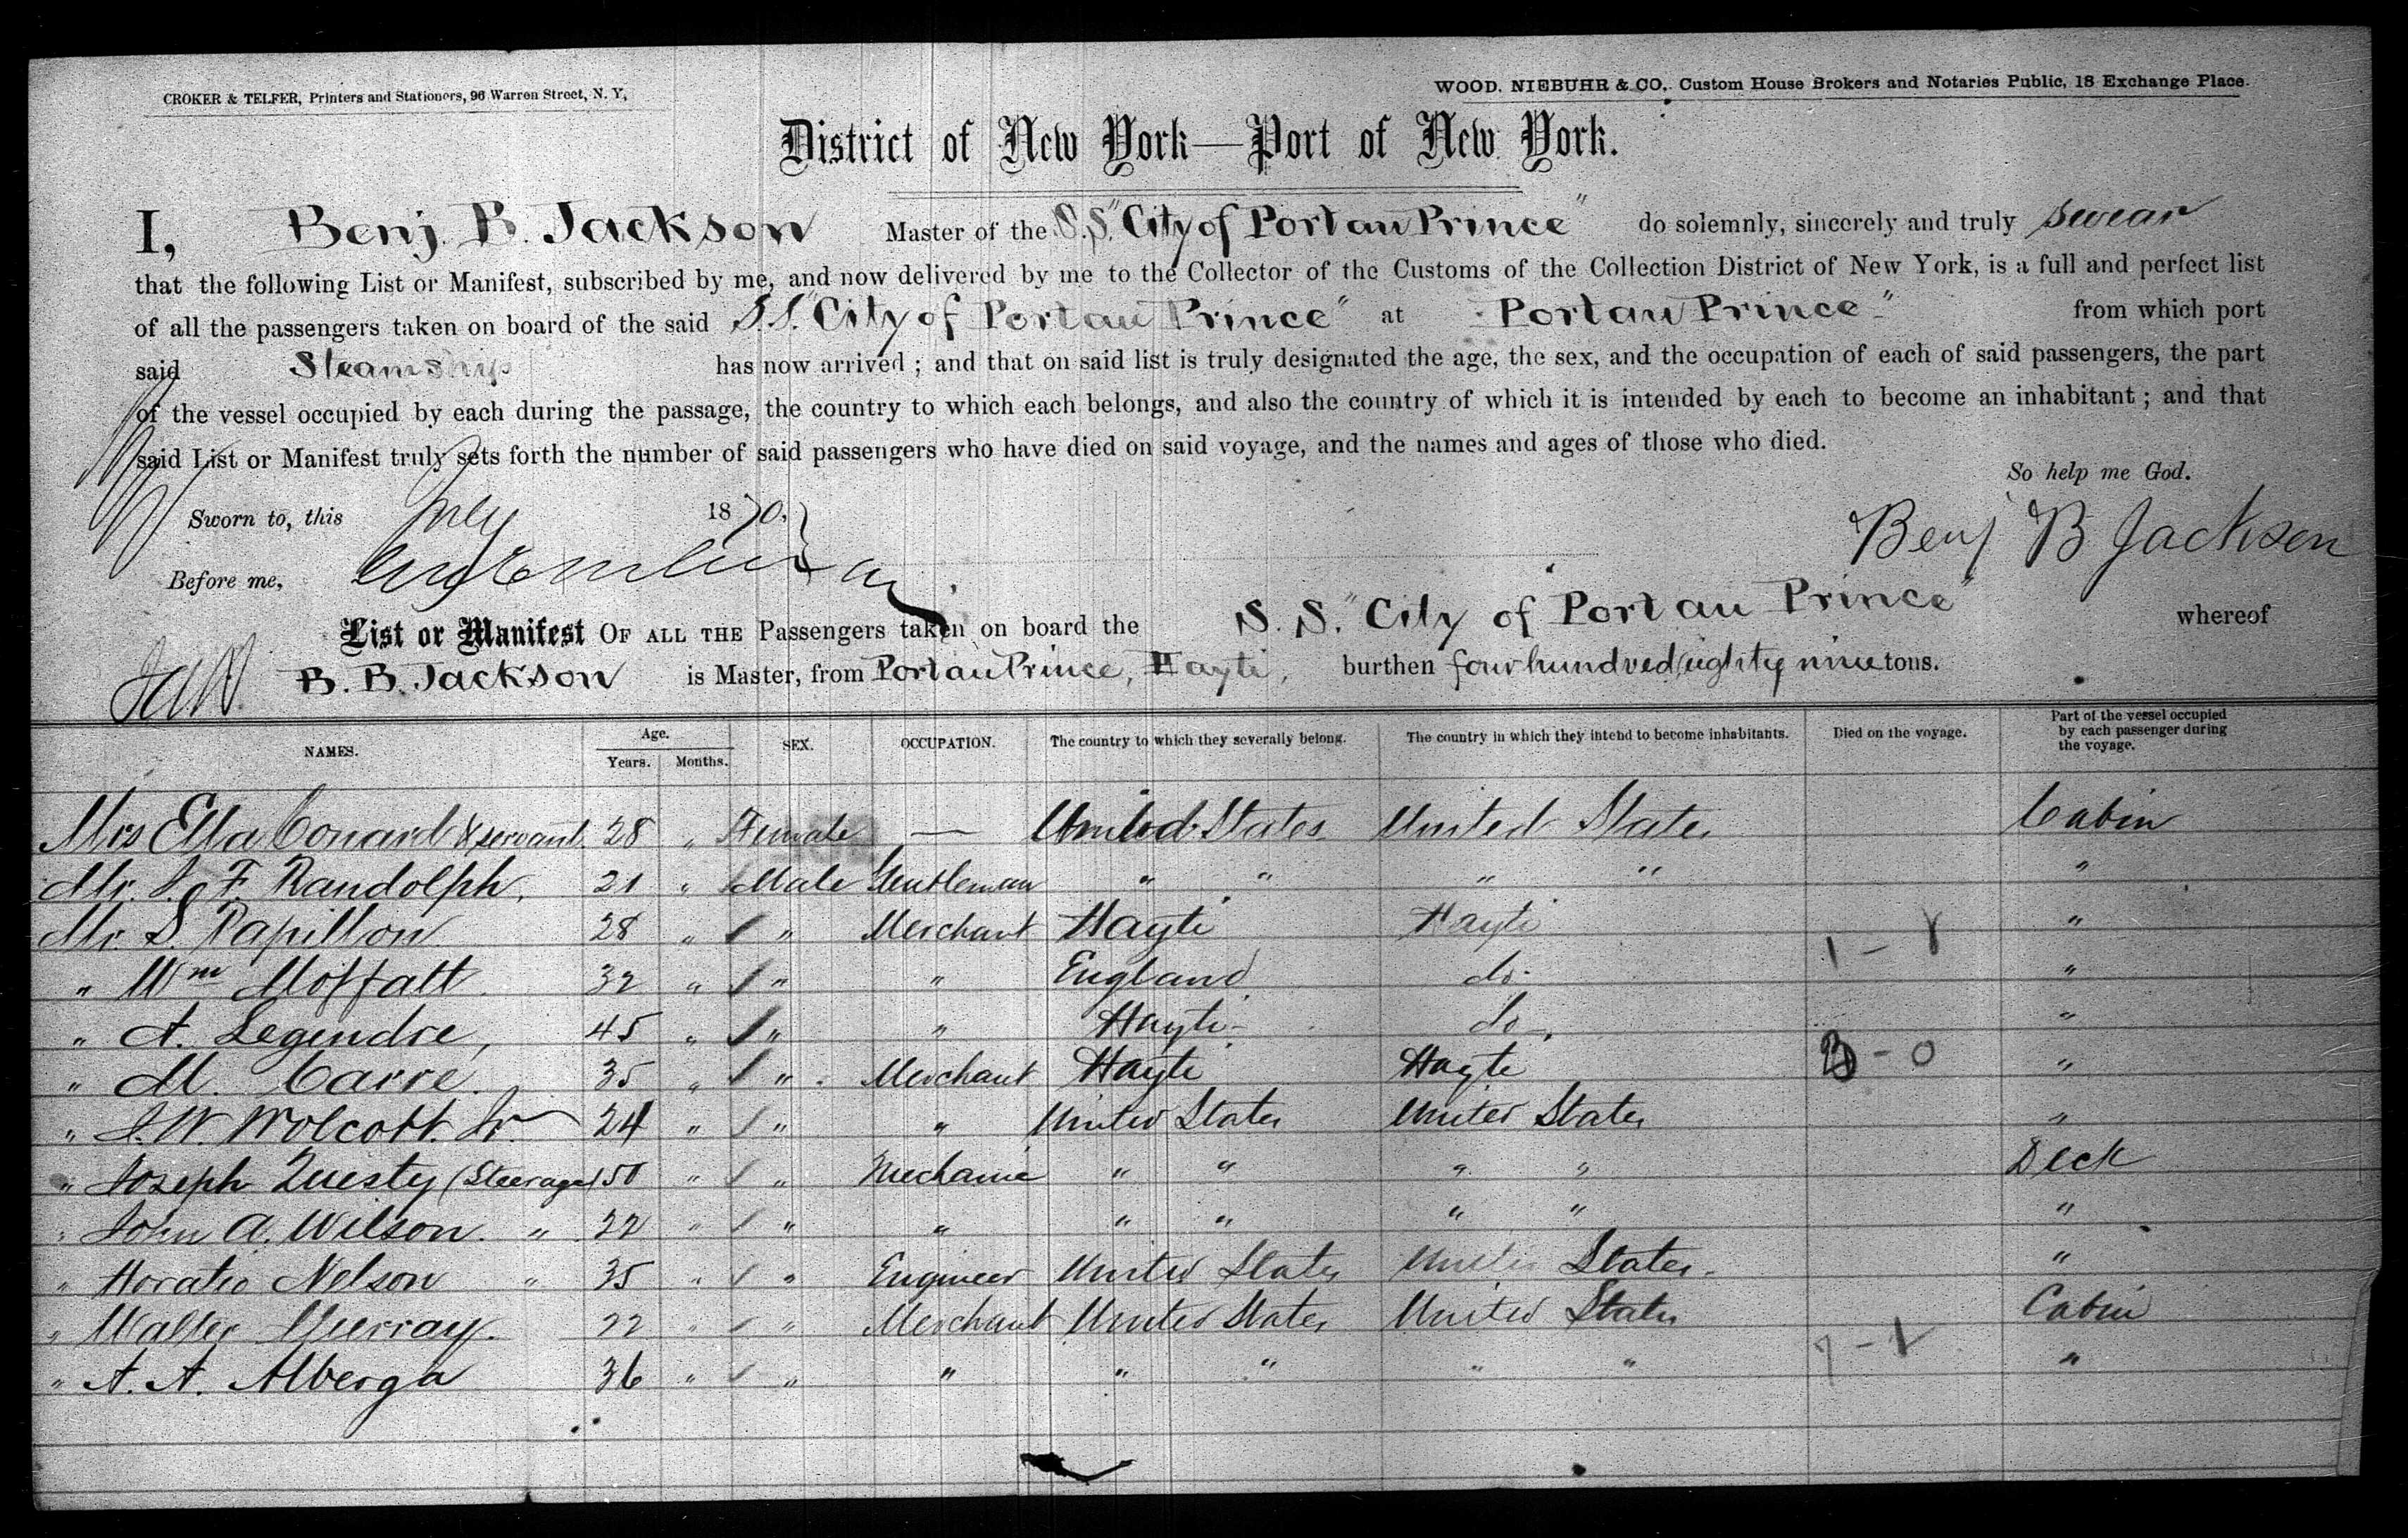 CROKER & TELFER, Printers and Stationers, 96 Warren Street, N. Y,
WOOD. NIEBUHR & CO,. Custom House Brokers and Notaries Public, 18 Exchange Place.
District of New York—Port of New York.
I, Benj. B. Jackson Master of the S.S. "City of Port au Prince" do solemnly, sincerely and truly swear
that the following List or Manifest, subscribed by me, and now delivered by me to the Collector of the Customs of the Collection District of New York, is a full and perfect list
of all the passengers taken on board of the said S.S. "City of Port au Prince" at Port au Prince" from which port
said Steamship has now arrived ; and that on said list is truly designated the age, the sex, and the occupation of each of said passengers, the part
of the vessel occupied by each during the passage, the country to which each belongs, and also the country of which it is intended by each to become an inhabitant ; and that
said List or Manifest truly sets forth the number of said passengers who have died on said voyage, and the names and ages of those who died.
So help me God.
Sworn to, this July 1870.
Benj B Jackson
Before me,
List or Manifest OF ALL THE Passengers taken on board the S. S. "City of Port au Prince" whereof
B. B. Jackson is Master, from Port au Prince, Hayti, burthen four hundred eighty nine tons.
NAMES. Age. Years. Months. SEX. OCCUPATION. The country to which they severally belong. The country in which they intend to become inhabitants. Died on the voyage. Part of the vessel occupied by each passenger during the voyage.
Mrs Ella Conard & servant. 28 " Female — United States United States Cabin
Mr. J. F. Randolph, 21 " Male Gentleman " " " " "
Mr. S. Papillon 28 " " Merchant Hayti Hayti "
" Wm Moffatt 32 " " " England do. "
" A. Legendre, 45 " " " Hayti do. "
" M. Carre. 35 " " Merchant Hayti Hayti "
" J. W. Wolcott. Jr. 24 " " " United States United States "
" Joseph Questy (Steerage) 50 " " Mechanic " " " " Deck
" John A. Wilson. " 22 " " " " " " " "
" Horatio Nelson " 35 " " Engineer United States United States. "
" Walter Murray. 22 " " Merchant United States United States Cabin
" A. A. Alberga 36 " " " " " " " "